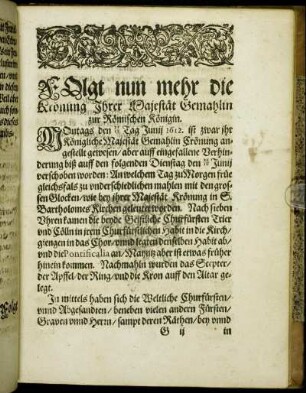 FOlgt nun mehr die
Krönung Ihrer Majestät Gemahlin
zur Römischen Königin.
MOntags den Tag Junij 1612. ist zwar ihr
Königliche Majestät Gemahlin Crönung an-
gestellt gewesen/ aber auff eingefallene Verhin-
derung biß auff den folgenden Dienstag den Junij
verschoben worden: An welchem Tag zu Morgen frue
gleichsfals zu underschiedlichen mahlen mit den gros-
sen Glocken/ wie bey ihrer Majestät Krönung in S.
Bartholomes Kirchen geleutet worden. Nach sieben
Uhren kamen die beyde Geistliche Churfürsten Trier
und Cölln in jrem Churfürstlichen Habit in die Kirch/
giengen in das Chor/ vnnd legten denselben Habit ab/
und die Pontificalia an/ Mayntz aber ist etwas früher
hinein kommen. Nachmahln wurden das Scepter/
der Apffel/ der Ring/ und die Kron auff den Altar ge-
legt.
In mittels haben sich die Weltliche Churfürsten/
unnd Abgesandten/ beneben vielen anderen Fürsten/
Graven vnnd Herrn/ sampt deren Räthen/ bey vnnd
G ij in